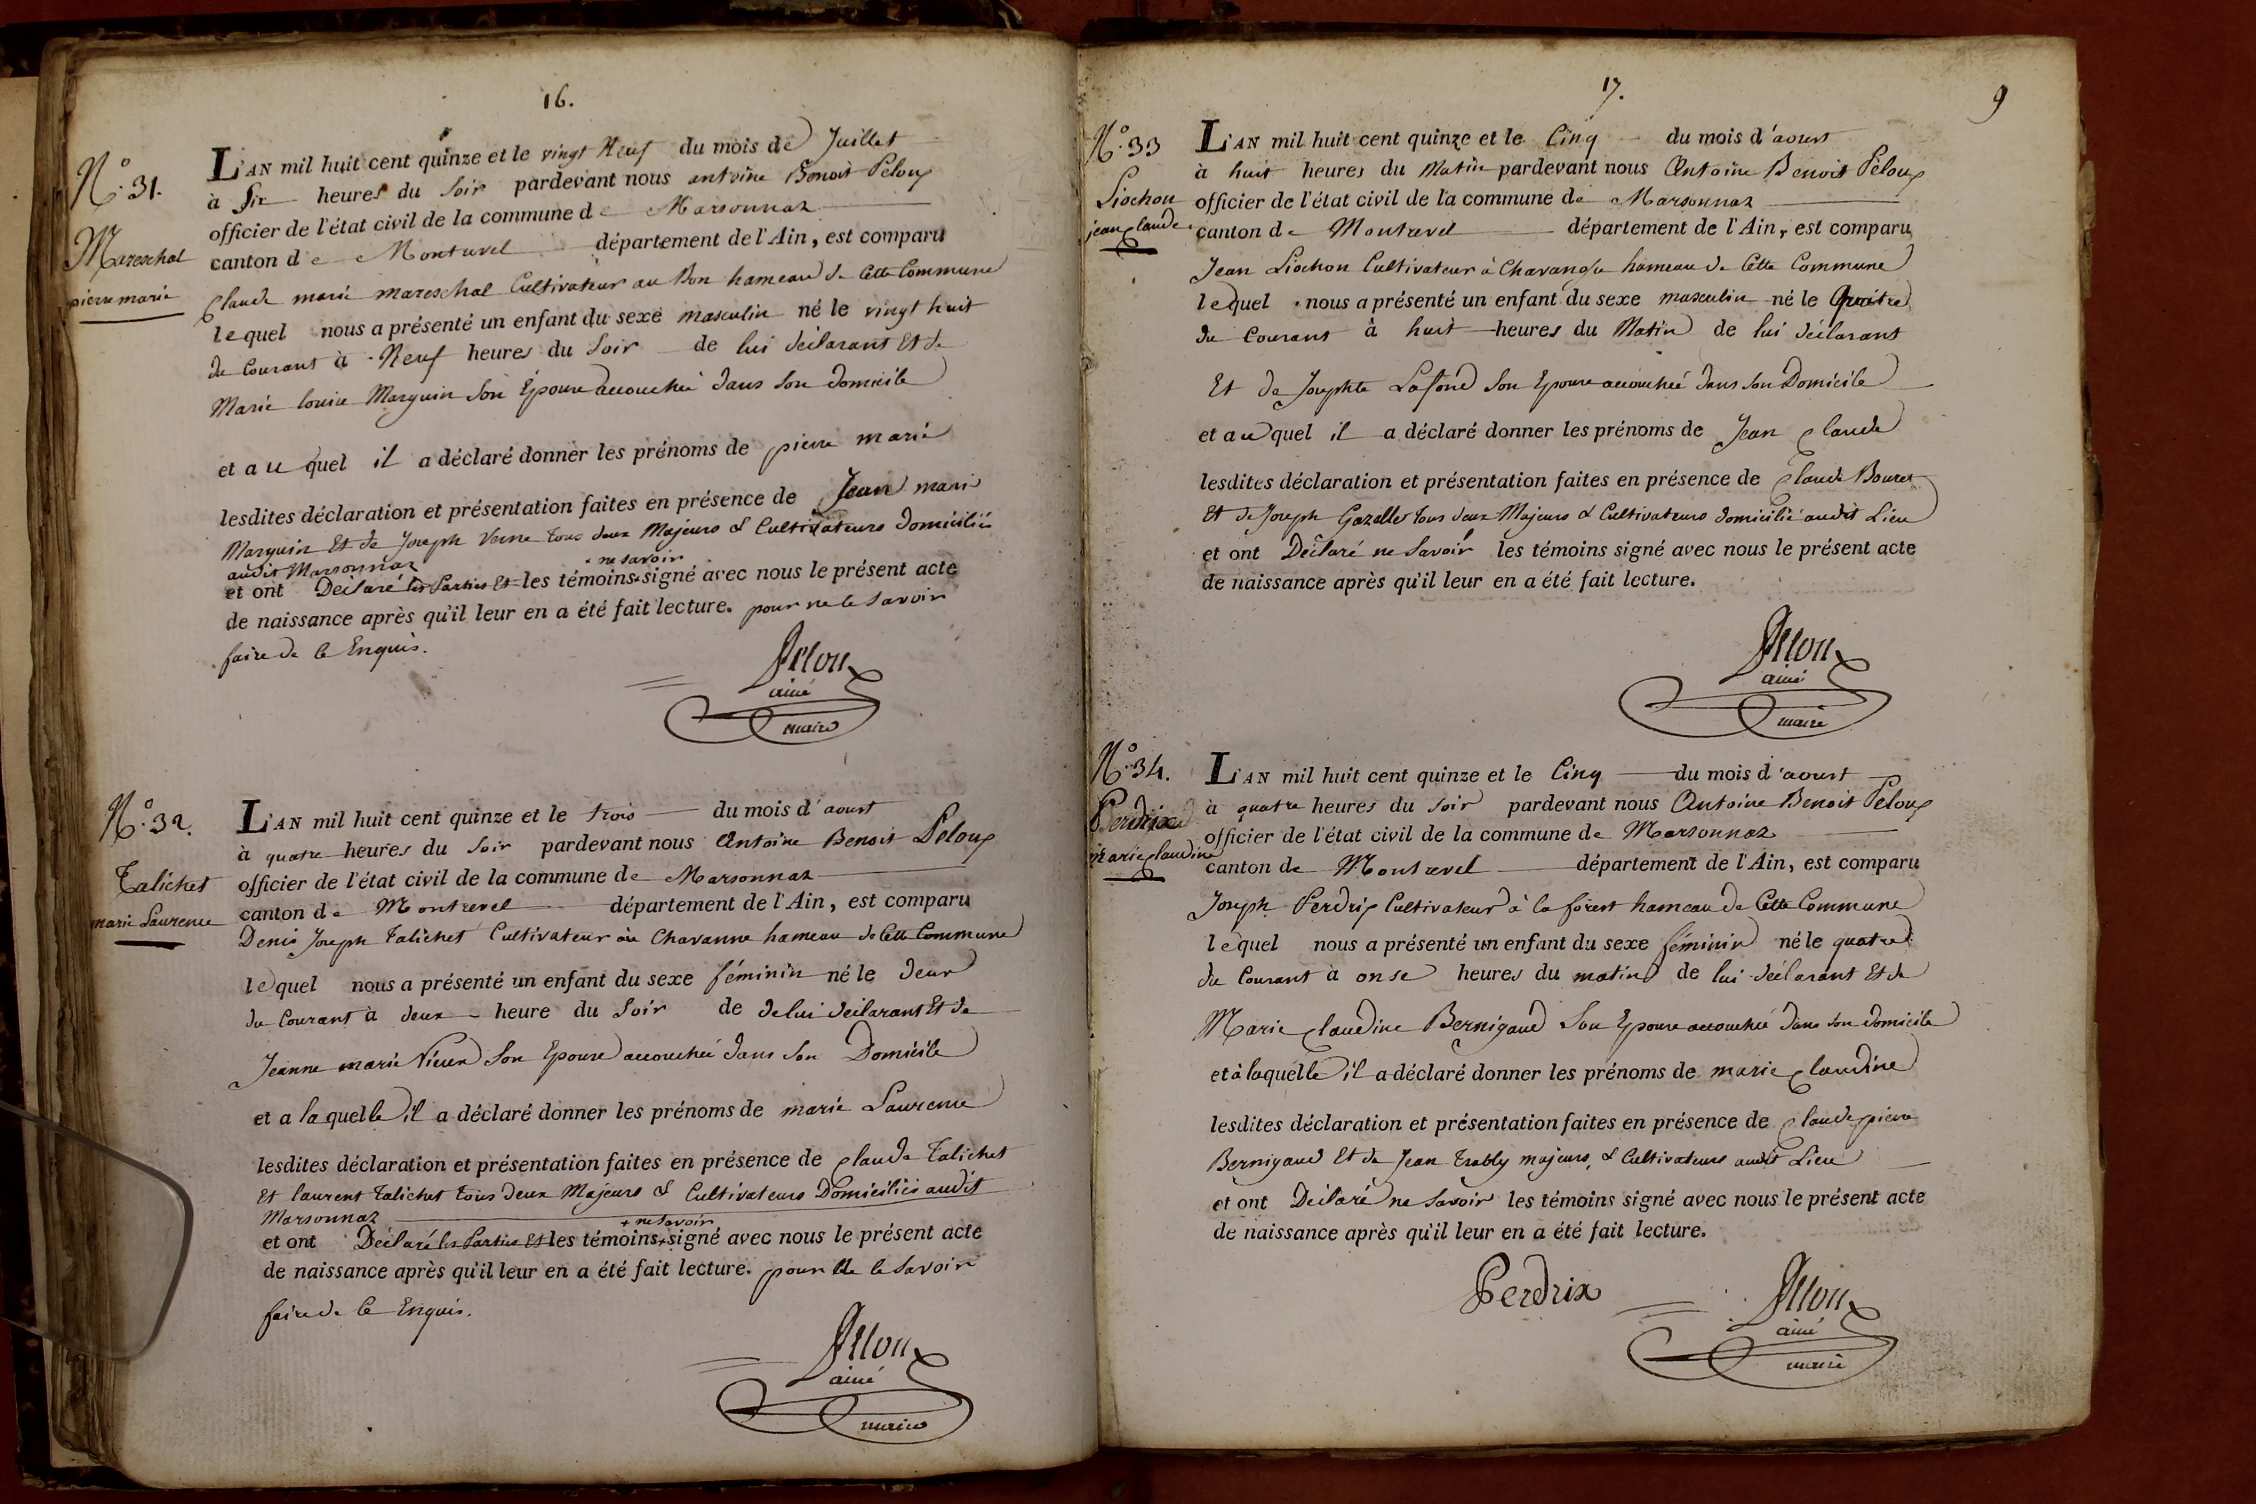 16.
N.º 31.
Mareschal
pierre marie
L'AN mil huit cent quinze et le vingt Neuf du mois de Juillet
à Six heures du Soir pardevant nous antoine Benoit Peloux
officier de l'état civil de la commune de Marsonnaz
canton de Montrevel département de l'Ain, est comparu
Claude marie mareschal Cultivateur au Bon hameau de Cette Commune
lequel nous a présenté un enfant du sexe masculin né le vingt huit
du Courant à Neuf heures du Soir de lui déclarant Et de
Marie louise Marguin Son Epouse accouchée dans Son domicile
et au quel il a déclaré donner les prénoms de pierre marie
lesdites déclaration et présentation faites en présence de Jean marie
Marguin Et de Joseph Verne tous deux Majeurs & Cultivateurs domiciliés
audit Marsonnaz + ne savoir
et ont Déclaré les Parties Et les témoins + signé avec nous le présent acte
de naissance après qu'il leur en a été fait lecture. pour ne le Savoir
faire de ce Enquis.
Peloux
ainé
maire
N.º 32.
Talichet
marie Laurence
L'AN mil huit cent quinze et le trois du mois d'aoust
à quatre heures du Soir pardevant nous Antoine Benoit Peloux
officier de l'état civil de la commune de Marsonnaz
canton de Montrevel département de l'Ain, est comparu
Denis Joseph Talichet Cultivateur au Chavanne hameau de Cette Commune
lequel nous a présenté un enfant du sexe féminin né le deux
du Courant à deux heure du Soir de de lui déclarant Et de
Jeanne marie Son Epouse accouchée dans Son Domicile
et a laquelle il a déclaré donner les prénoms de marie Laurence
lesdites déclaration et présentation faites en présence de Claude Talichet
Et laurent Talichet tous deux Majeurs & Cultivateurs Domiciliés audit
Marsonnaz + ne savoir
et ont Déclaré les Parties Et les témoins + signé avec nous le présent acte
de naissance après qu'il leur en a été fait lecture. pour Ne le Savoir
faire de Ce Enquis.
Peloux
ainé
maire
17.
9
N.º 33
Liochon
jean Claude
L'AN mil huit cent quinze et le Cinq du mois d'aoust
à huit heures du Matin pardevant nous Antoine Benoit Peloux
officier de l'état civil de la commune de Marsonnaz
canton de Montrevel département de l'Ain, est comparu
Jean Liochon Cultivateur à hameau de Cette Commune
lequel nous a présenté un enfant du sexe masculin né le Quatre
du Courant à huit heures du Matin de lui déclarant
Et de Josephte Lafond Son Epouse accouchée dans Son Domicile
et au quel il a déclaré donner les prénoms de Jean Claude
lesdites déclaration et présentation faites en présence de Claude
Et de Joseph Gazelle tous deux Majeurs & Cultivateurs domicilié audit Lieu
et ont Déclaré ne Savoir les témoins signé avec nous le présent acte
de naissance après qu'il leur en a été fait lecture.
Peloux
ainé
maire
N.º 34.
Perdrix
Marie Claudine
L'AN mil huit cent quinze et le Cinq du mois d'aoust
à quatre heures du Soir pardevant nous Antoine Benoit Peloux
officier de l'état civil de la commune de Marsonnaz
canton de Montrevel département de l'Ain, est comparu
Joseph Perdrix Cultivateur à la forest hameau de Cette Commune
lequel nous a présenté un enfant du sexe féminin né le quatre
du Courant à onse heures du matin de lui déclarant Et de
Marie Claudine Bernigaud Son Epouse accouchée dans son domicile
et à laquelle il a déclaré donner les prénoms de marie Claudine
lesdites déclaration et présentation faites en présence de Claude pierre
Bernigaud Et de Jean Trably majeurs, & Cultivateurs audit Lieu
et ont Déclaré ne Savoir les témoins signé avec nous le présent acte
de naissance après qu'il leur en a été fait lecture.
Perdrix
Peloux
ainé
maire